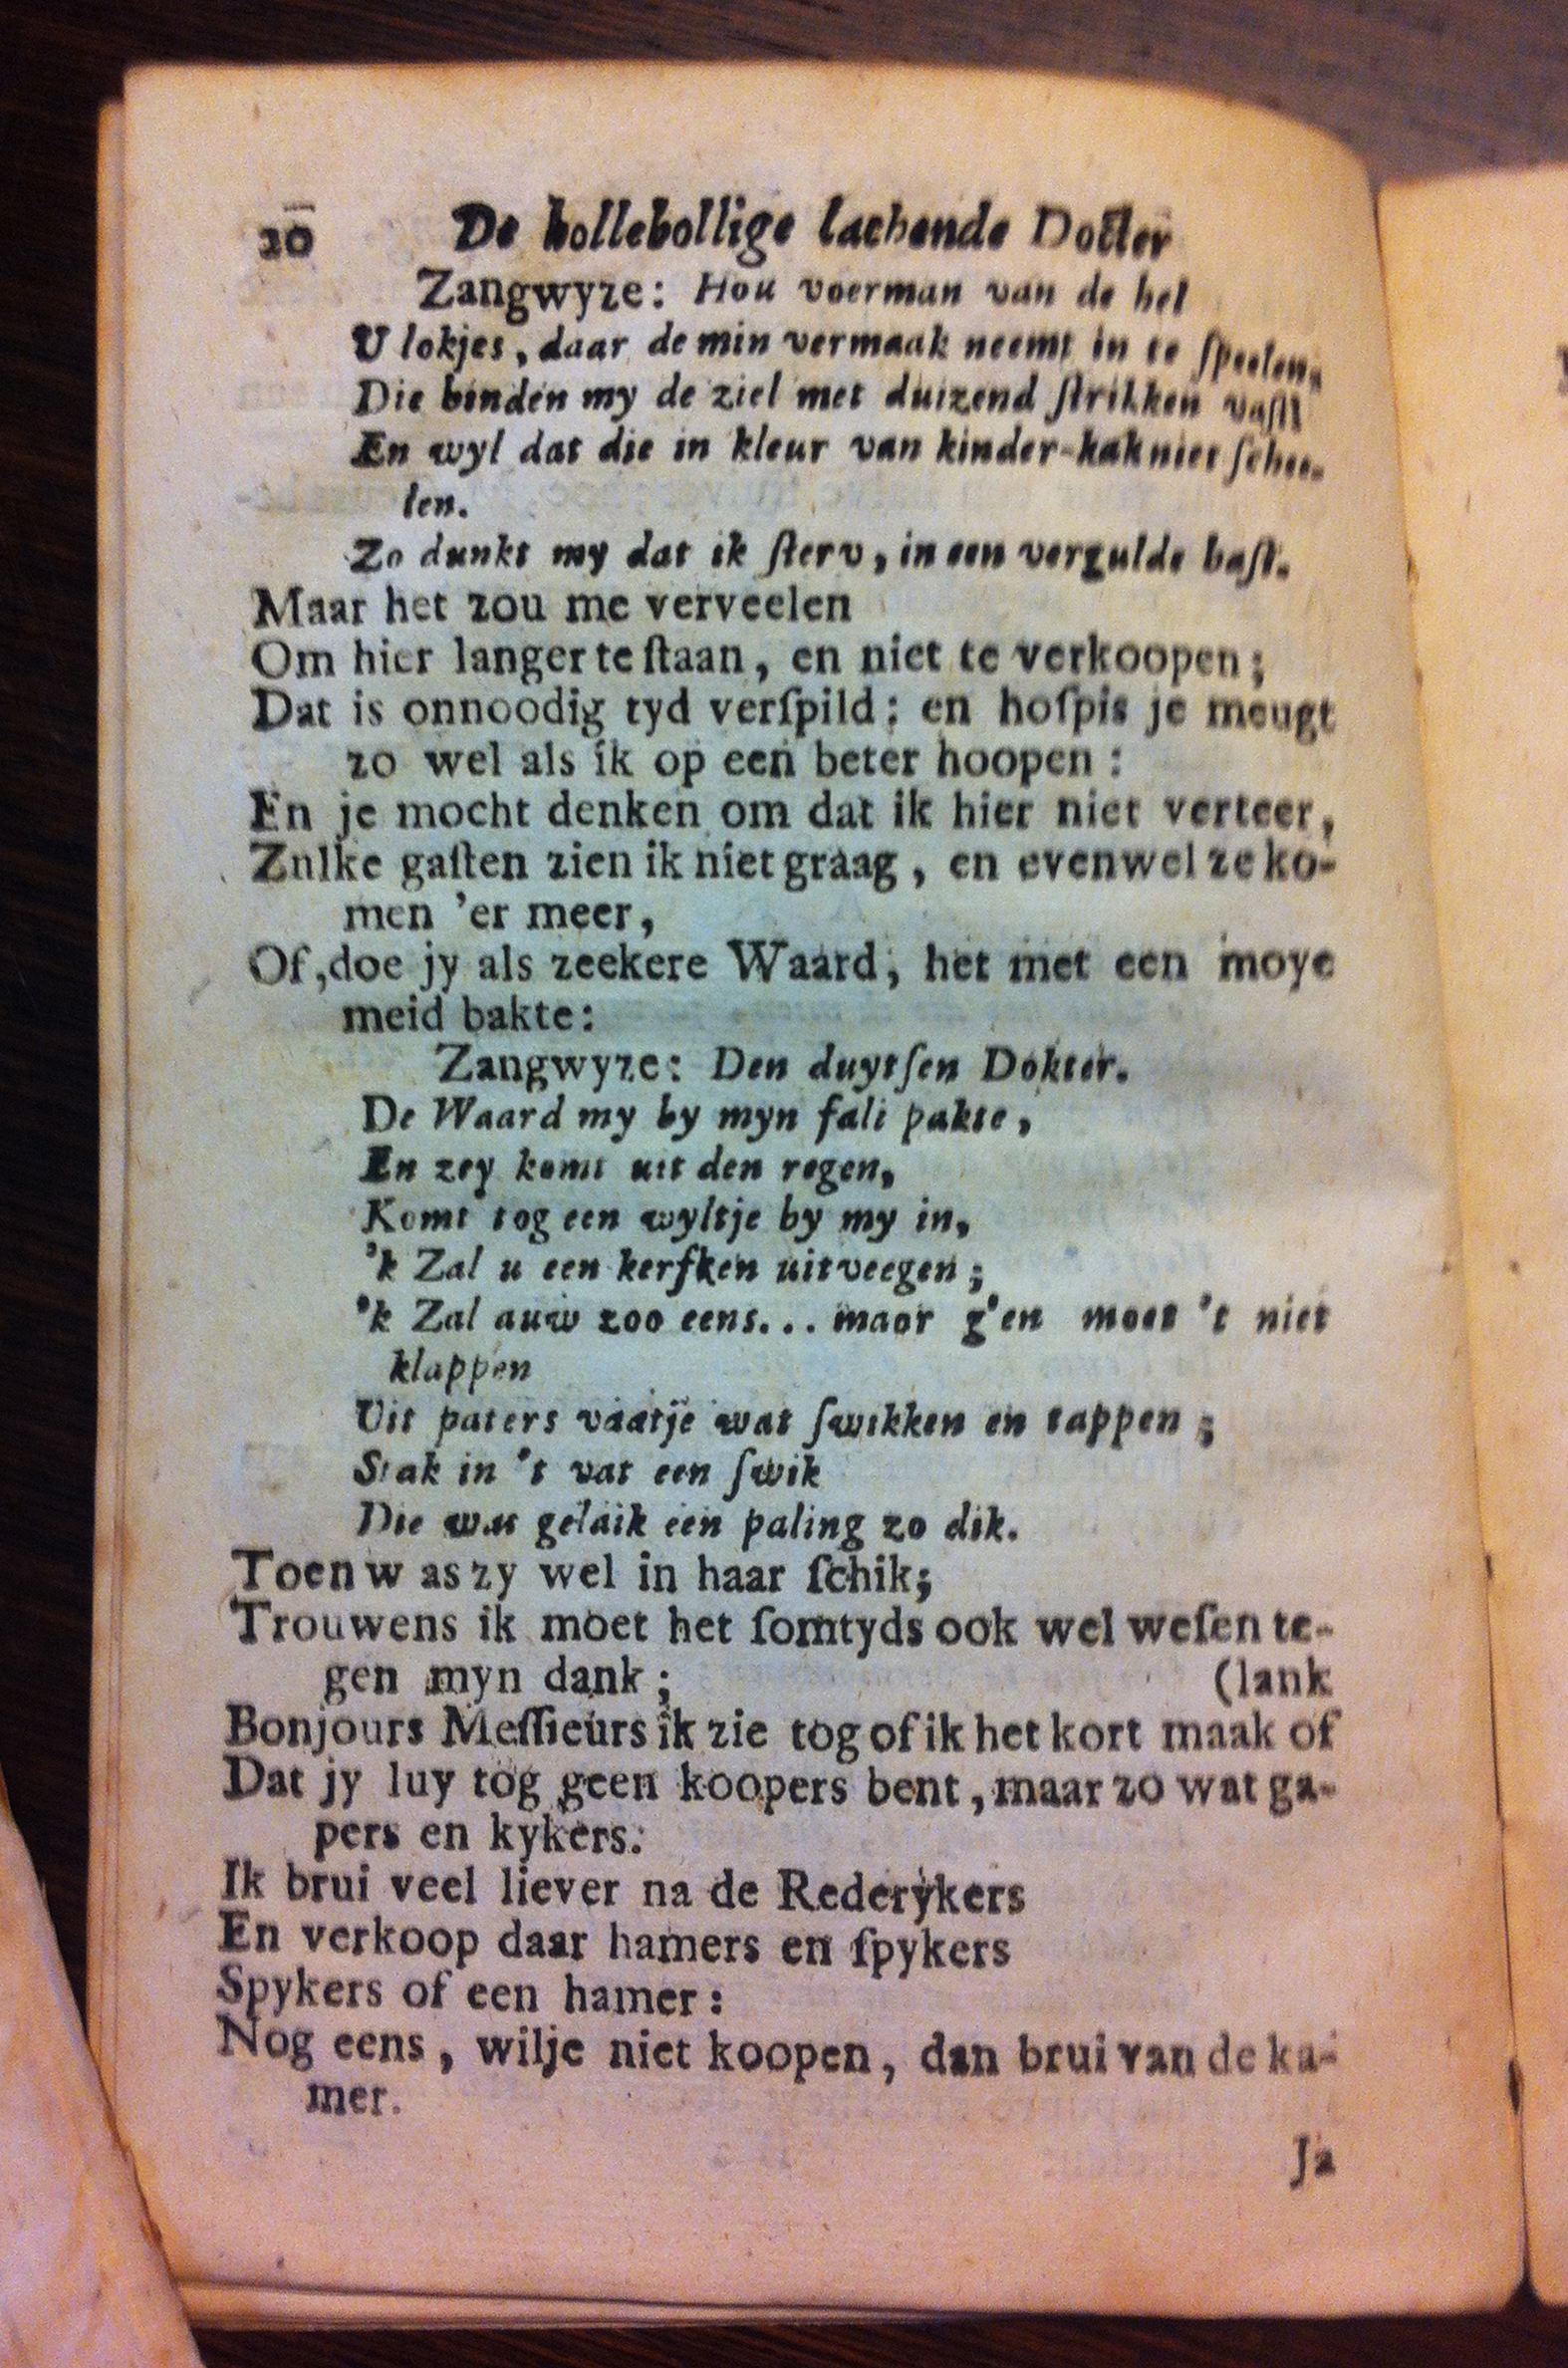 20 De hollebollige lachende Docter
Zangwyze: Hou voerman van de hel
U lokjes, daar de min vermaak neemt in te ſpeelen,
Die binden my de ziel met duizend ſtrikken vaſt
En wyl dat die in kleur van kinder-kak niet ſchee-
len.
Zo dunkt my dat ik ſterv, in een vergulde baſt.
Maar het zou me verveelen
Om hier langer te ſtaan, en niet te verkoopen;
Dat is onnoodig tyd verſpild; en hoſpis je meugt
zo wel als ik op een beter hoopen:
En je mocht denken om dat ik hier niet verteer,
Zulke gaſten zien ik niet graag, en evenwel ze ko-
men 'er meer,
Of, doe jy als zeekere Waard, het met een moye
meid bakte:
Zangwyze: Den duytſen Dokter.
De Waard my by myn fali pakte,
En zey komt uit den regen,
Komt tog een wyltje by my in,
'k Zal u een kerfken uitveegen;
'k Zal auw zoo eens... maor g'en moet 't niet
klappen
Uit paters vaatje wat ſwikken en tappen;
Stak in 't vat een ſwik
Die was gelaik een paling zo dik.
Toen w as zy wel in haar ſchik;
Trouwens ik moet het ſomtyds ook wel weſen te-
gen myn dank; (lank
Bonjours Meſſieurs ik zie tog of ik het kort maak of
Dat jy luy tog geen koopers bent, maar zo wat ga-
pers en kykers.
Ik brui veel liever na de Rederykers
En verkoop daar hamers en ſpykers
Spykers of een hamer:
Nog eens, wilje niet koopen, dan brui van de ka-
mer.
Ja